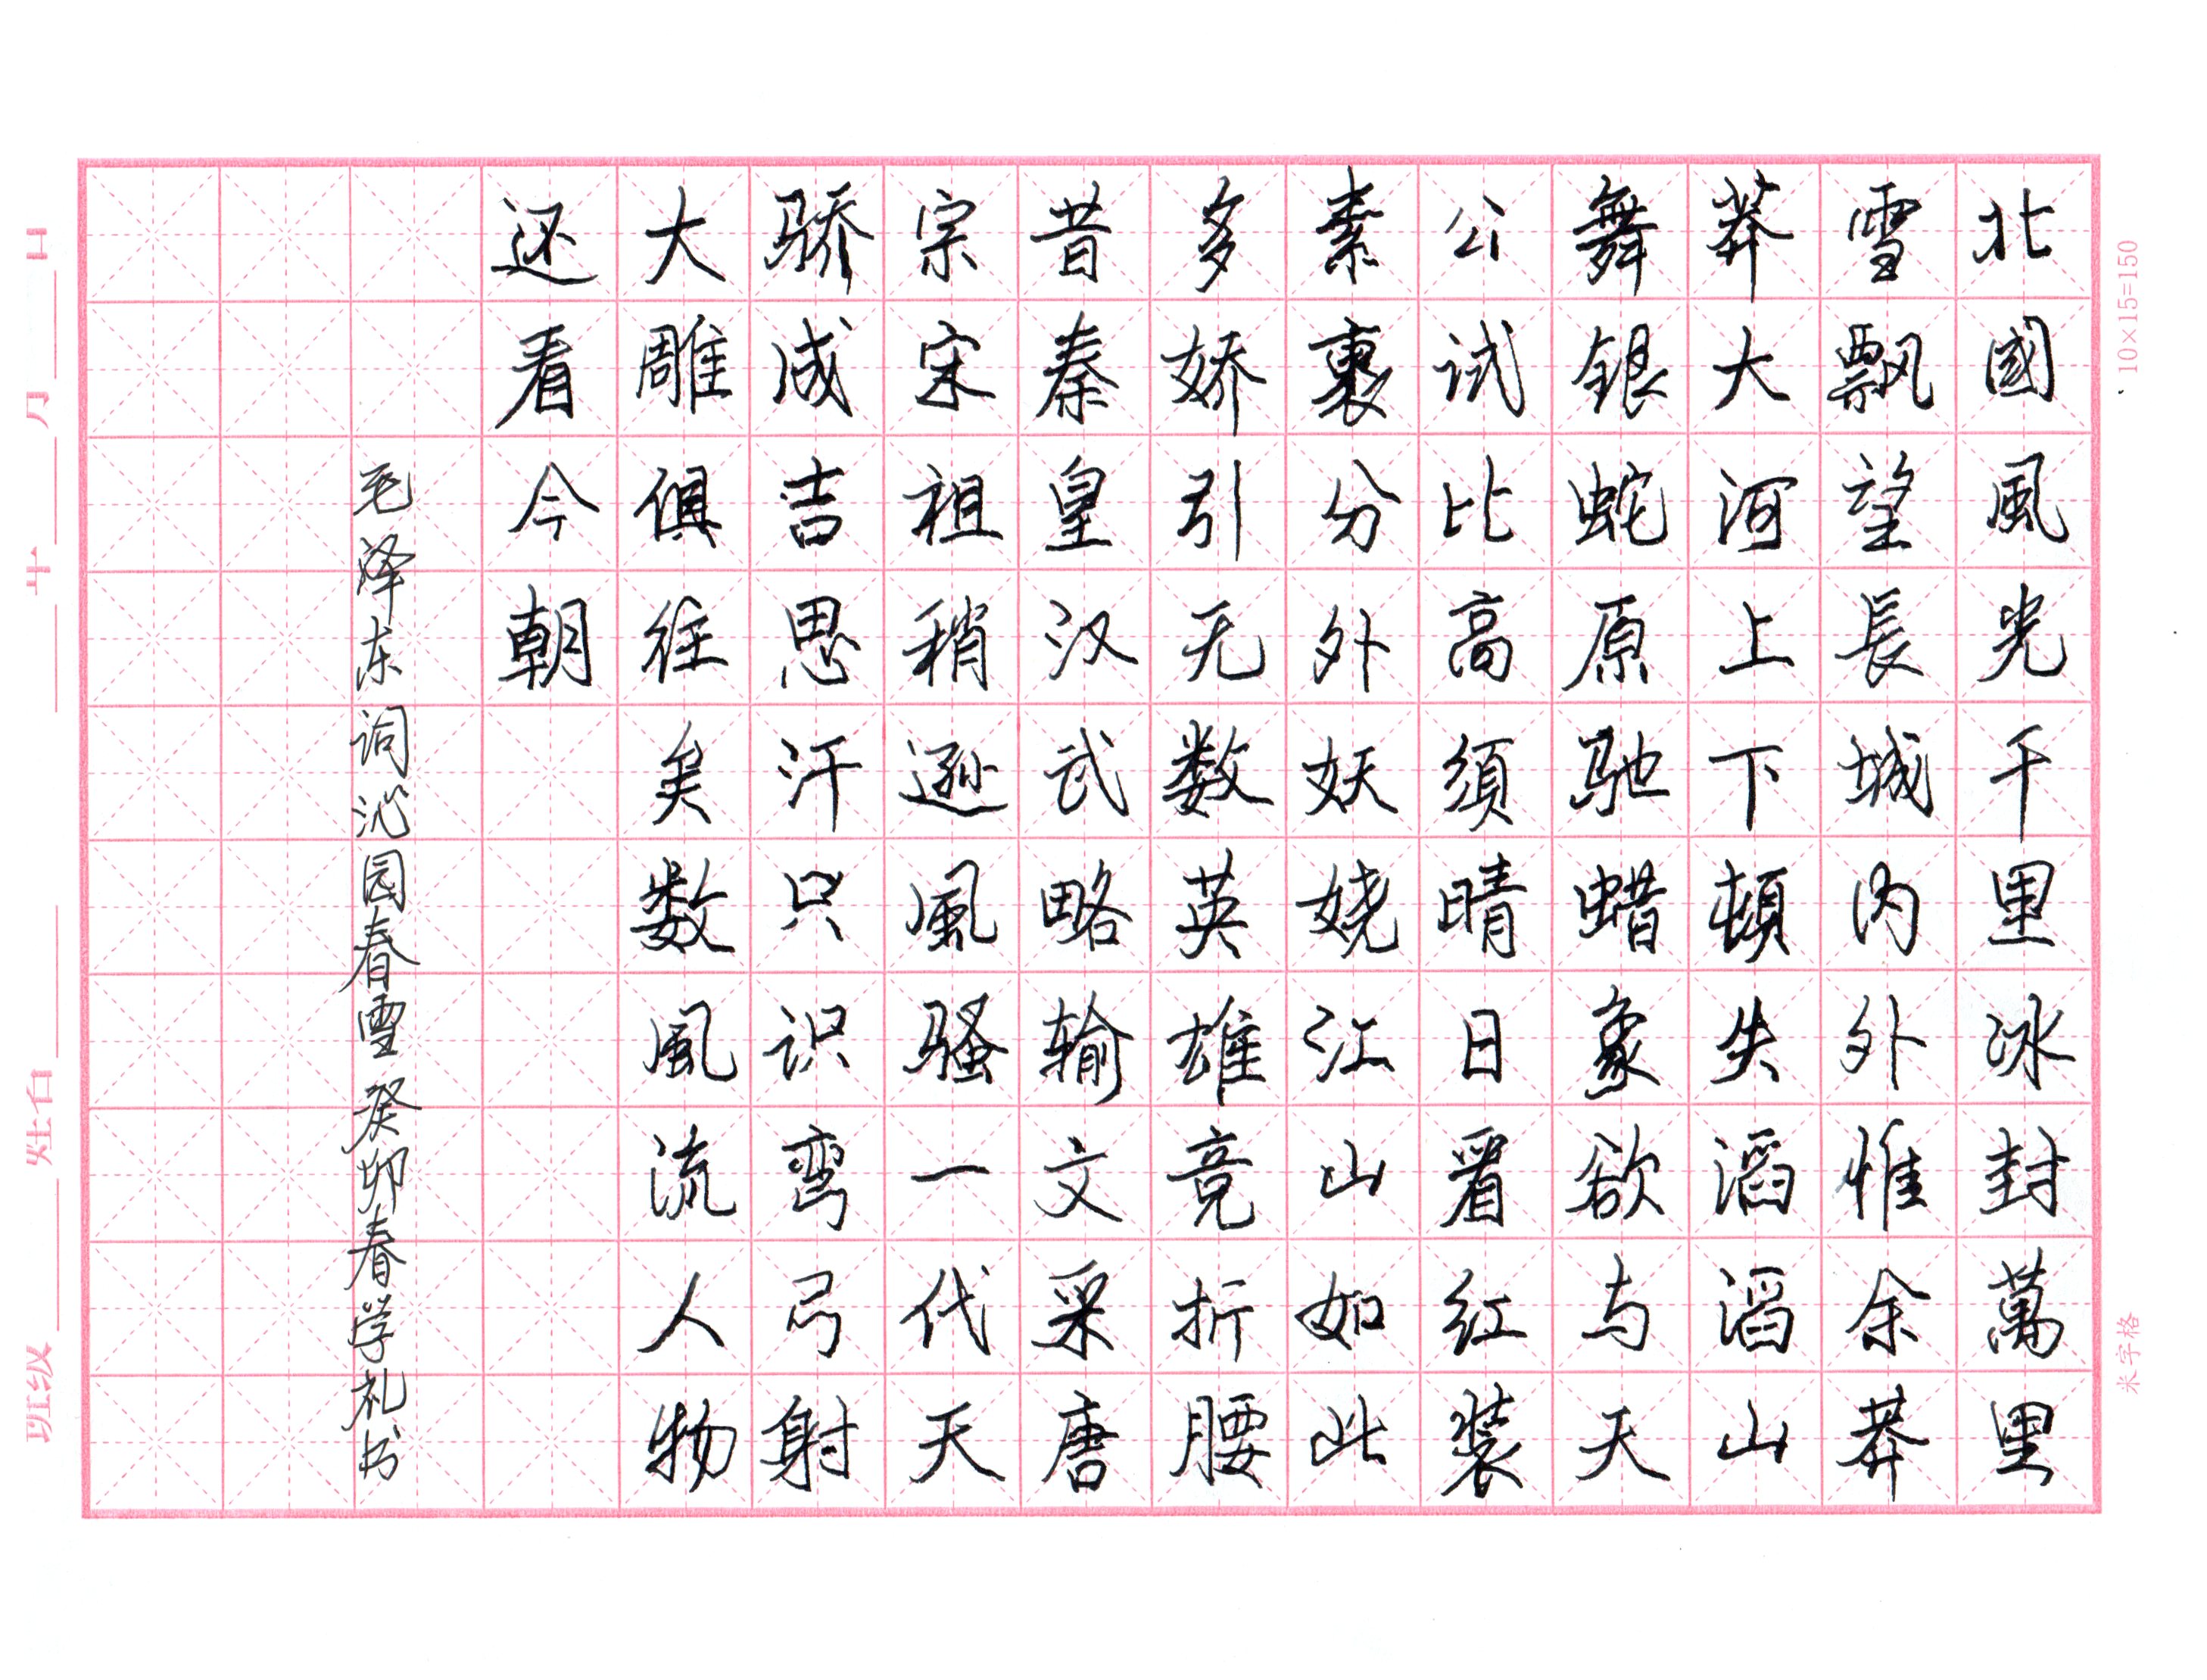 北國風光千里冰封萬里
雪飘望長城内外惟余莽
莽大河上下頓失滔滔山
舞銀蛇原驰蜡象欲与天
公试比高须晴日看红装
素裹分外妖娆江山如此
多娇引无数英雄竞折腰
昔秦皇汉武略输文采唐
宗宋祖稍逊風骚一代天
骄成吉思汗只识弯弓射
大雕俱往矣数風流人物
还看今朝
毛泽东词沁园春雪癸卯春学礼书
10×15=150
米字格
班级 姓名 年 月 日